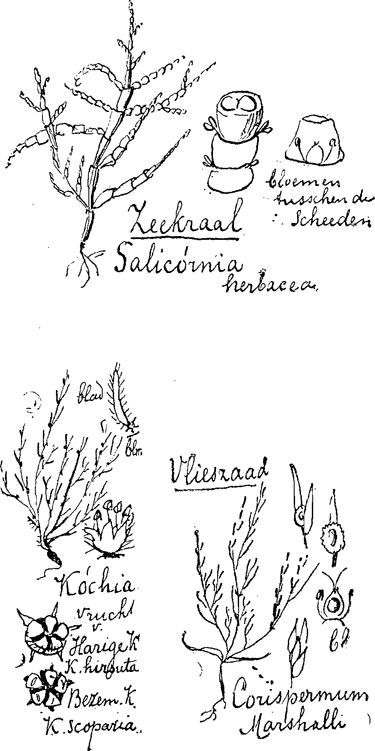 bloemen
tusschen de
Scheeden
Zeekraal
Salicórnia
herbacea.
blad
blm
Kóchia
vrucht
v.
Harige K
K. hirsuta
Bezem. K.
K. Scoparia.
Vlieszaad
bl
Corispermum
Marshalli